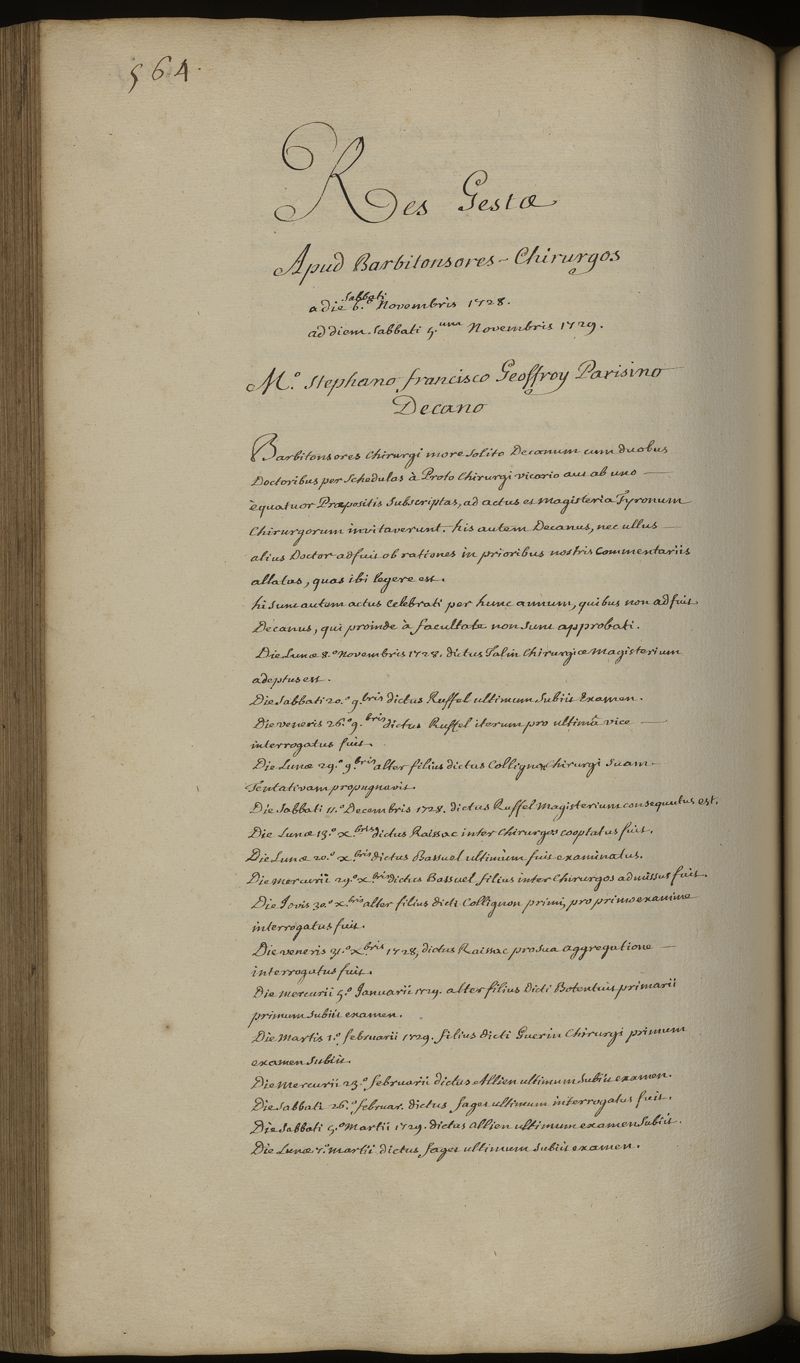 564.
Res Gestæ
Apud Barbitonsores - Chirurgos
Sabbati
a die 6.ª Novembris 1728.
ad diem Sabbati 5.um Novembris 1729.
M.º Stephano francisco Geoffroy Parisino
Decano
Barbitonsores Chirurgi more solito Decanum cum duobus
Doctoribus per Schedulas à Proto Chirurgi vicario aut ab uno
è quatuor Præpositis Subscriptas, ad actus et Magisteria Tyronum
Chirurgorum invitaverunt. his autem Decanus, nec ullus
alius Doctor adfuit ob rationes in prioribus nostris Commentariis
allatas, quas ibi legere est.
hi sunt autem actus Celebrati per hunc annum, quibus non adfuit
Decanus, qui proinde à facultate non sunt approbati.
Die Lunæ 8.º Novembris 1728. dictus Talin Chirurgiæ Magisterium
adeptus est.
Die Sabbati 20.º 9.bris dictus Ruffel ultimum Subiit Examen.
Die veneris 26.º 9.bris dictus Ruffel iterum pro ultimâ vice
interrogatus fuit.
Die Lunæ 29.º 9.bris alter filius dictus Collignon Chirurgi suam
Tentativam propugnavit.
Die Sabbati 11.º Decembris 1728. dictus Ruffel Magisterium consequutus est.
Die Lunæ 13.º x.bris dictus Raissac inter Chirurgos cooptatus fuit.
Die Lunæ 20.º x.bris dictus Bassuel ultimùm fuit examinatus.
Die Mercurii 29.º x.bris dictus Bassuel filius inter Chirurgos admissus fuit.
Die Jovis 30.º x.bris alter filius dicti Collignon primi, pro primo examine
interrogatus fuit.
Die veneris 31.º x.bris 1728, dictus Raissac pro sua aggregatione
interrogatus fuit.
Die Mercurii 5.º Januarii 1729. alter filius Dicti Botentuit primarii
primum subiit examen.
Die Martis 1.º februarii 1729. filius dicti Guerin Chirurgi primum
examen subiit.
Die Mercurii 23.º februarii dictus Allien ultimum subiit examen.
Die Sabbati 26.º februar. dictus faget ultimum interrogatus fuit.
Die Sabbati 5.º Martii 1729. dictus Allien ultimum examen Subiit.
Die Lunæ 7.º Martii dictus faget ultimum subiit examen.